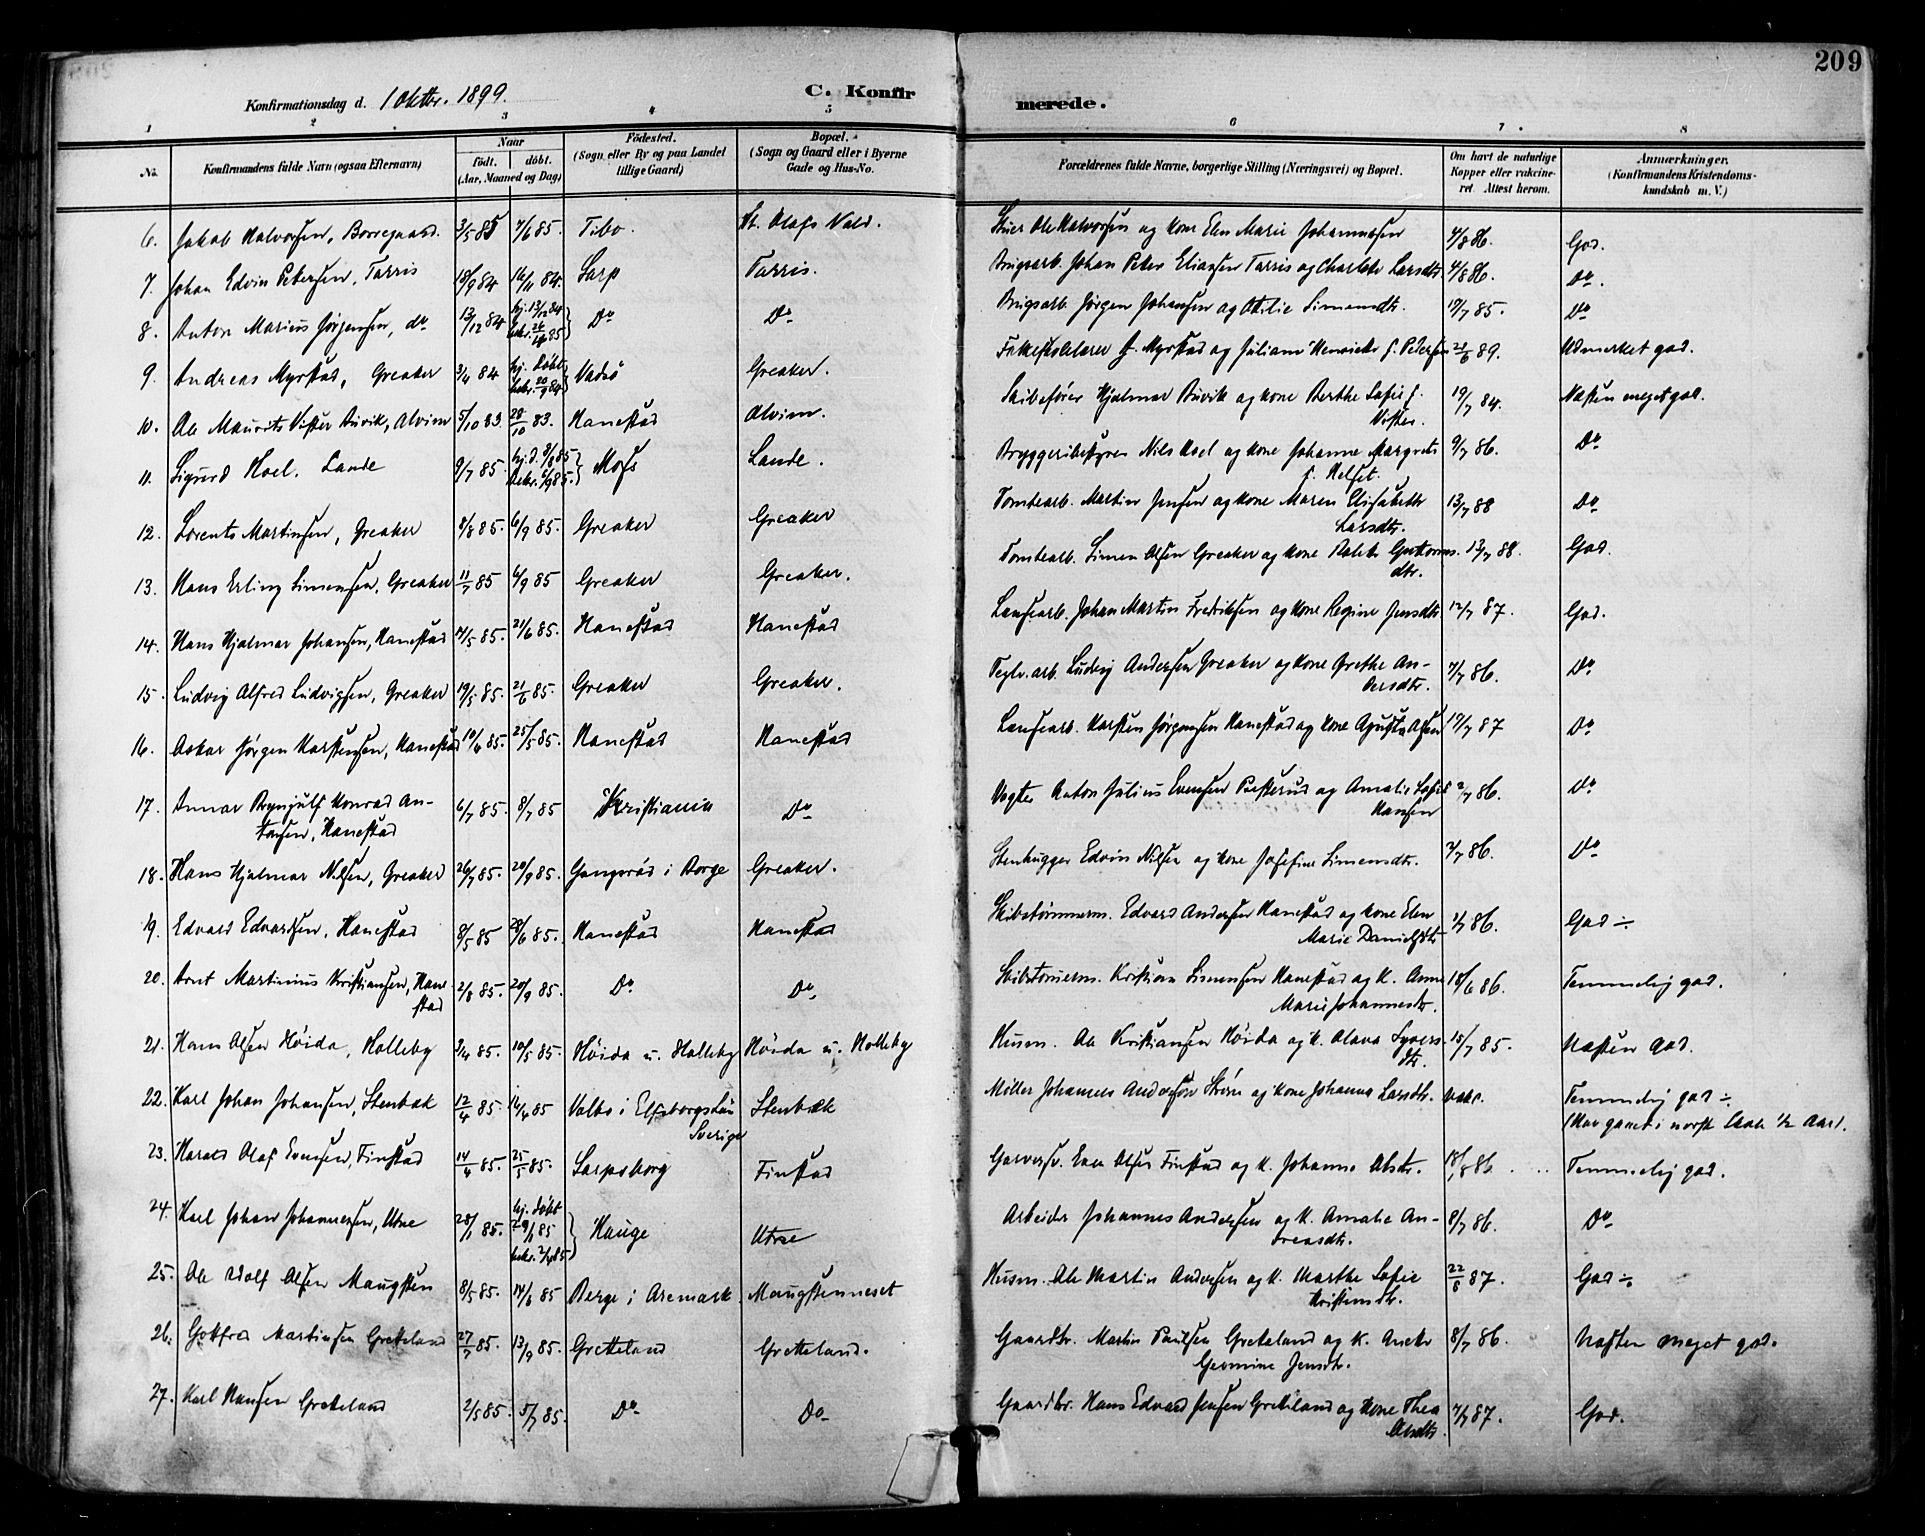 209
Konfirmationsdag d. 1 Oktbr. 1899. C. Konfirmerede.
1 2 3 4 5 6 7 8
No. Konfirmandens fulde Navn (ogsaa Efternavn) Naar født. døbt. (Aar, Maaned og Dag) Fødested. (Sogn eller By og paa Landet tillige Gaard) Bopæl. (Sogn og Gaard eller i Byerne Gade og Hus-No. Forældrenes fulde Navne, borgerlige Stilling (Næringsvei) og Bopæl. Om havt de naturlige Kopper eller vakcineret. Attest herom. Anmærkninger. (Konfirmandens Kristendomskundskab m. V.)
6. Jakob Halvorsen, Borregaard. 3/5 85 7/6 85. Tibo. St. Olafs Vold. Stuer Ole Halvorsen og kone Elen Marie Johannesen 4/8 86. God.
7. Johan Edvin Petersen, Tarris 18/9 84 16/11 84. Sarp Tarris. Brugsarb. Johan Peter Eliassen Tarris og Charlotte Larsdtr. 4/8 86. Do.
8. Anton Marius Jørgensen, do 13/12 84 hj. 13/12 84 bekr. 85 Do Do Brugsarb. Jørgen Johansen og Otilie Simensdtr. 19/7 85. Do
9. Andreas Myrstad, Greaker 3/4 84 hj. døbt bekr. 20/9 84 Vadsö Greaker. Folkeskolelærer Myrstad og Juliane Henriette f. Petersen 21/6 89. Udmerket god.
10. Ole Maurits Vister Buvik, Alvim 5/10 83. 28/10 83. Hanestad Alvim. Skibsfører Hjalmar Buvik og kone Berthe Sofie f. Vister. 19/7 84. Næsten meget god.
11. Sigurd Hoel. Lande 9/7 85. hj. d. 9/8 85 Bekr. 6/9 85. Moss Lande. Bryggeribestyrer Nils Hoel og kone Johanne Margrete f. Helset. 9/7 86. Do
12. Lorents Martinsen, Greaker 8/8 85. 6/9 85. Greaker Greaker Tomtearb. Martin Jensen og kone Maren Elisabeth Larsdtr. 13/7 88 Do
13. Hans Erling Simensen, Greaker 11/7 85 6/9 85 Greaker Greaker. Tomtearb. Simen Olsen Greaker og kone Guttormsdtr. 13/7 88. God.
14. Hans Hjalmar Johansen, Hanestad 14/5 85. 21/6 85. Hanestad Hanestad Landsearb. Johan Martin Fredriksen og kone Regine Jensdtr. 12/7 87. God.
15. Ludvig Alfred Ludvigsen, Greaker 19/5 85. 21/6 85. Greaker Greaker. Teglv. arb. Ludvig Andersen Greaker og kone Grethe Andersdtr. 7/7 86. Do
16. Oskar Jørgen Karstensen, Hanestad 10/4 85. 25/5 85. Hanestad Hanestad Karsten Jørgensen Hanestad og kone Agusta Olsen 19/7 87 Do
17. Annar Brynjulf Konrad Antonsen, Hanestad 6/7 85. 8/7 85 Kristiania Do Vogter Anton Julius Evensen og Amalie Sofie Hansen 2/7 86. Do
18. Hans Hjalmar Nilsen, Greaker 26/7 85. 20/9 85. Gangsrød i Borge Greaker. Stenhugger Edvin Nilsen og kone Josefine Simensdtr. 2/7 86. Do
19. Edvard Edvardsen, Hanestad 8/5 85 28/6 85. Hanestad Hanestad Skibstømmerm. Edvard Andersen Hanestad og kone Elen Marie Danielsdtr 1/7 86. God ÷
20. Arnt Martinius Kristiansen, Hanestad 2/8 85. 20/9 85. Do Do Skibstømerm. Kristian Simensen Hanestad og K. Anne Marie Johannesdtr. 18/6 86. Temmelig god.
21. Hans Olsen Höida, Holleby 3/4 85. 10/5 85. Höida u. Holleby Höida u. Holleby Husm. Ole Kristiansen Höida og K. Olava Syversdtr. 15/7 85. Næsten god.
22. Karl Johan Johansen, Stenbæk 12/4 85. 14/4 85 Valbo i Elfsborgslän Sverige Stenbæk Møller Johannes Andersson Ström og kone Johanna Larsdtr. vakc. Temmelig god ÷ (Har gaaet i norsk Skole 1/2 Aar).
23. Harald Olaf Evensen, Finstad 14/4 85. 25/5 85. Sarpsborg Finstad Garversv. Even Olsen Finstad og K. Johanne Olsdtr. 18/8 86. Temmelig god.
24. Karl Johan Johannessen, Utne 28/1 85. hj. døbt 29/1 85 bekr. 2/4 85 Hauge Utne Arbeider Johannes Andersen og K. Amalie Andreasdtr. 8/7 86. Do
25. Ole Adolf Olsen Maugsten 8/5 85. 14/6 85 Berge i Aremark. Maugstenneset Husm. Ole Martin Andersen og K. Marthe Sofie Kristiansdtr. 22/6 87. God ÷
26. Gotfred Martinsen Gretteland 27/7 85. 13/9 85. Gretteland Gretteland. Gaardbr. Martin Paulsen Gretteland og K. Anette Germine Jensdtr. 8/7 86. Næsten meget god.
27. Karl Hansen Gretteland 2/5 85. 5/7 85. Do Do Gaardbr. Hans Edvard Jensen Gretteland og kone Thea Olsdtr. 7/7 87. God.